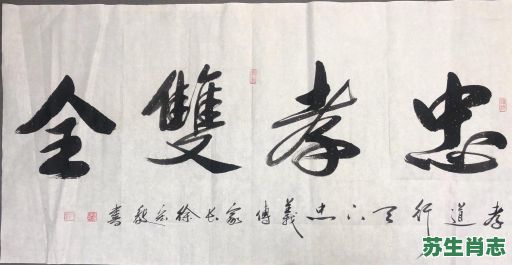 忠孝雙全
孝道行天下忠義傳家長徐宗毅書
苏生肖志